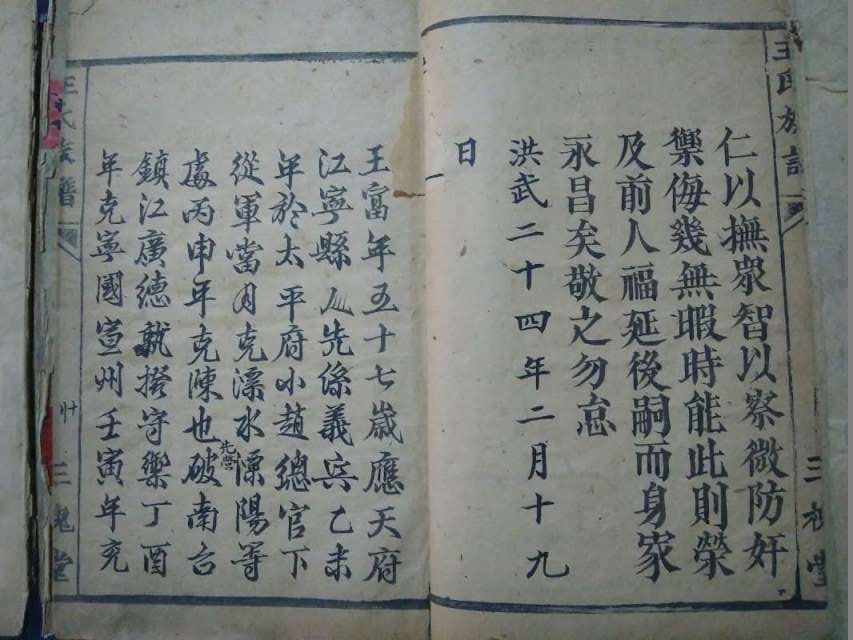 王氏族譜
三槐堂
仁以撫眾智以察微防奸
禦侮幾無暇時能此則榮
及前人福延後嗣而身家
永昌矣敬之勿怠
洪武二十四年二月十九
日
王富年五十七歲應天府
江寧縣人先係義兵乙未
年於太平府小趙總官下
從軍當月克溧水溧陽等
處丙申年克陳也先營破南台
鎮江廣德就撥守禦丁酉
年克寧國宣州壬寅年充
王氏族譜
三槐堂